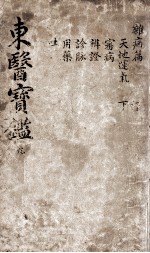 雜病篇
天地運氣
審病
辨證
診脉
用藥
吐
下
東醫寶鑑